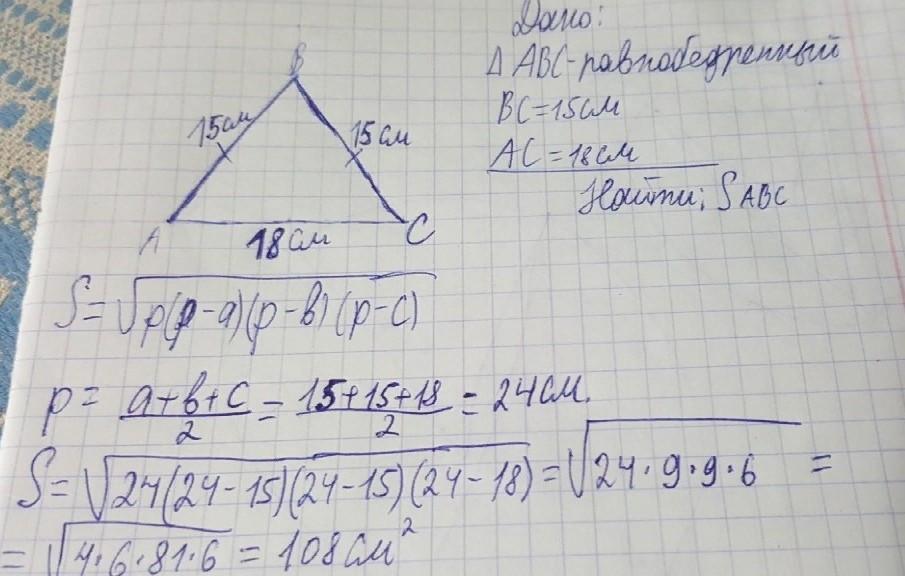 Дано:
Δ ABC-равнобедренный
BC=15см
AC=18см
Найти: S ABC
B
15см
15см
A
18см
C
S=√p(p-a)(p-b)(p-c)
p= a+b+c/2 = 15+15+18/2 = 24см.
S=√24(24-15)(24-15)(24-18)=√24·9·9·6 =
=√4·6·81·6 = 108см²